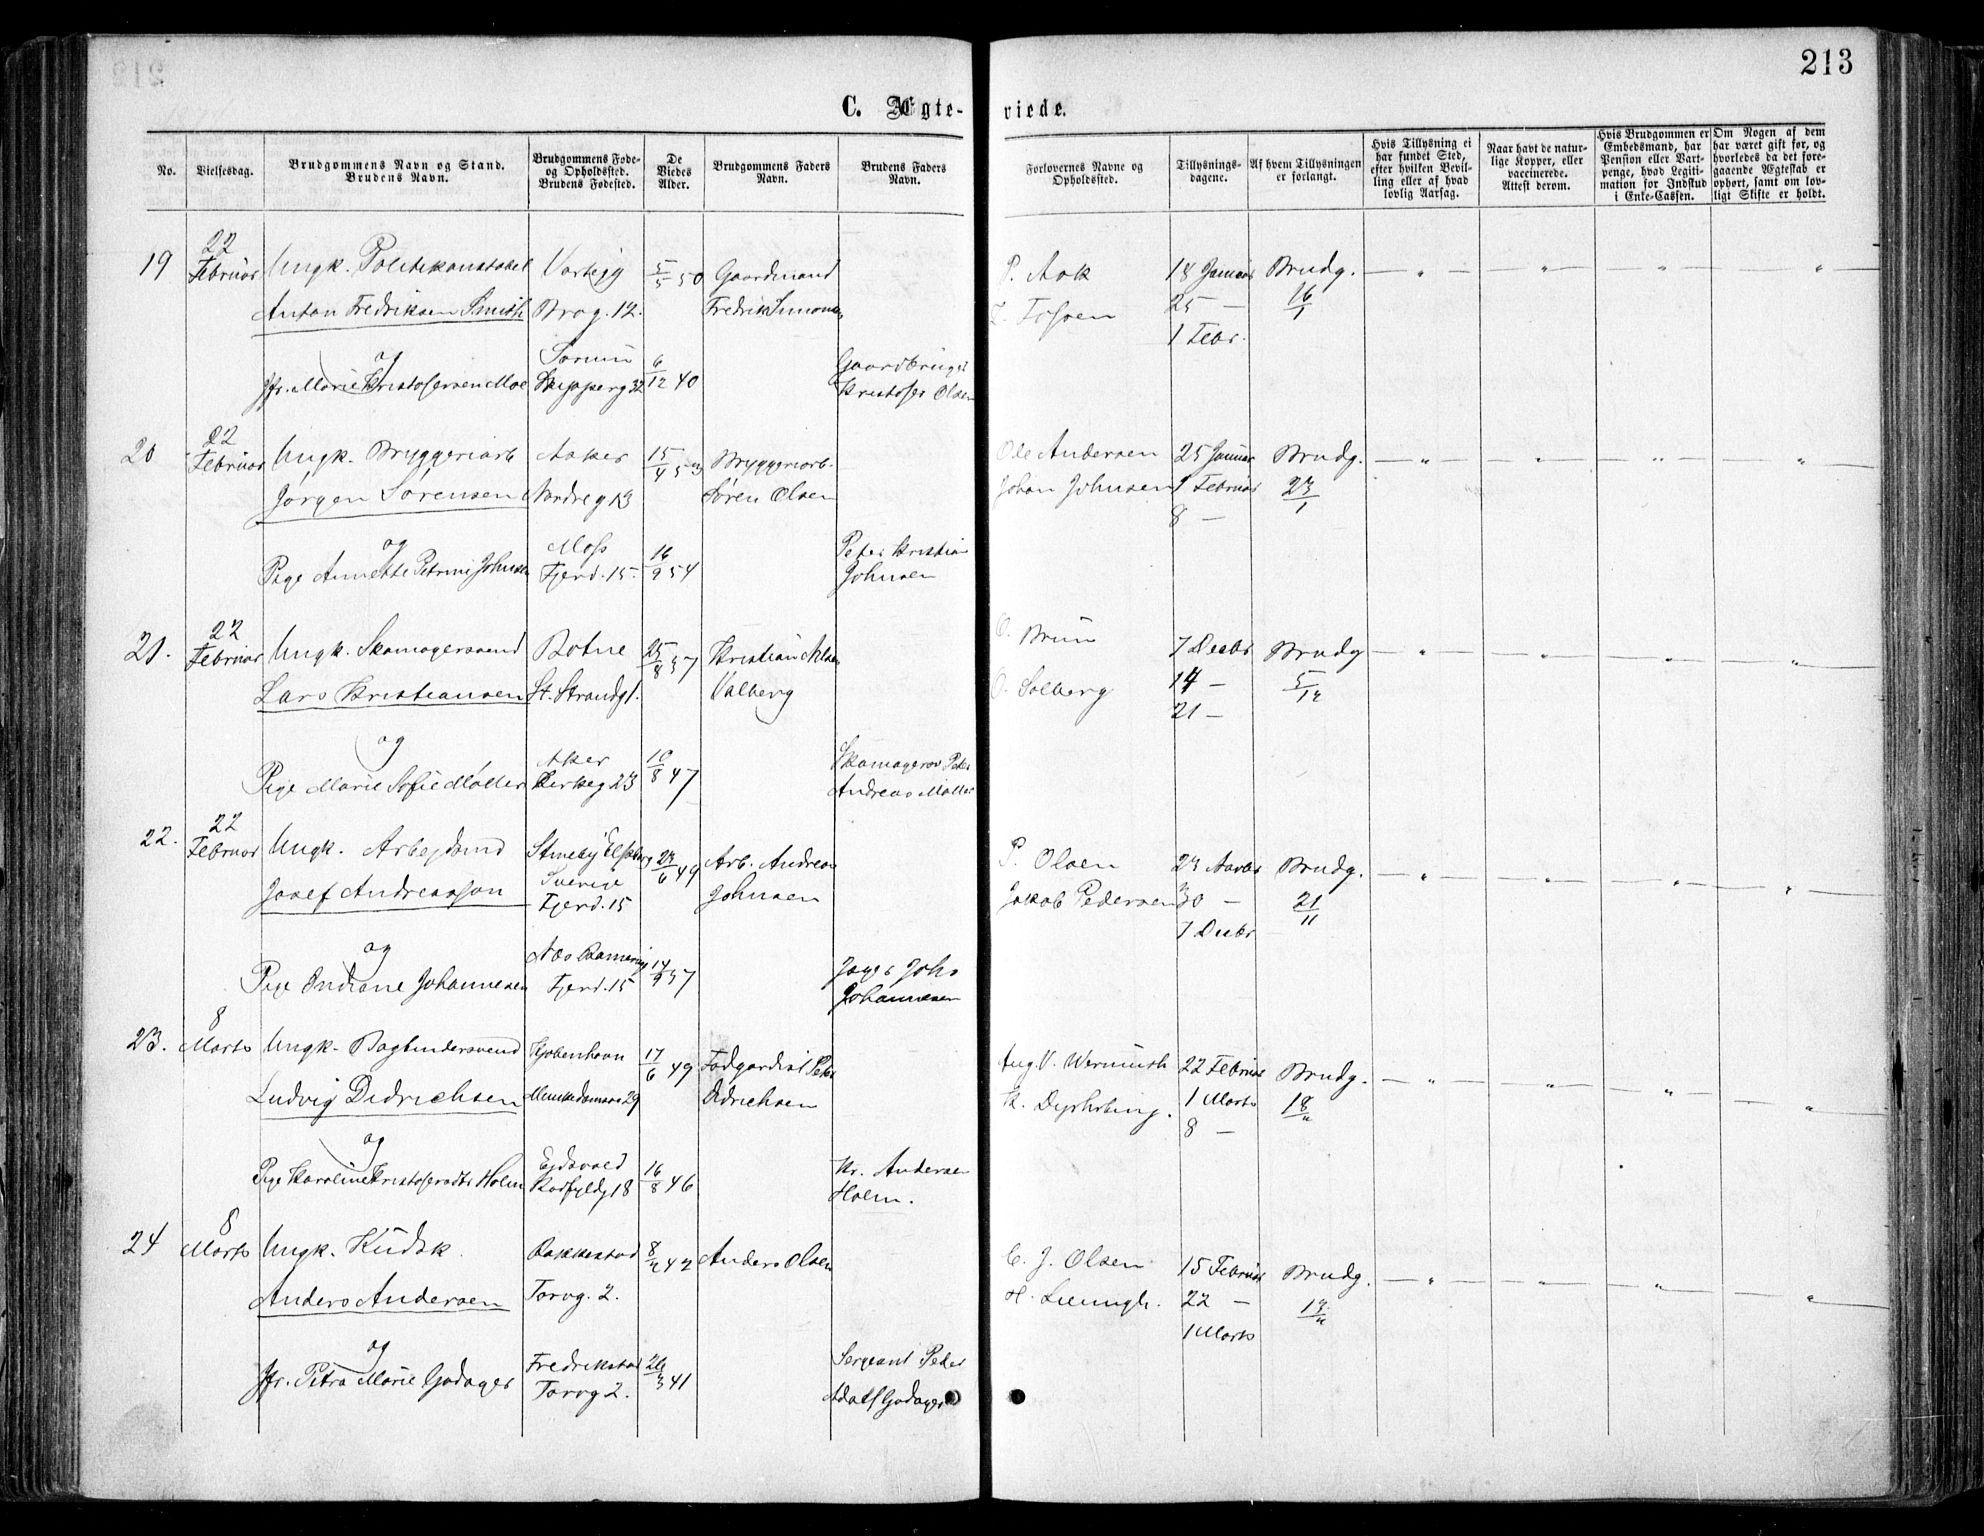 213
C. Ægte-
viede.
No.
Vielsesdag.
Brudgommens Navn og Stand.
Brudens Navn.
Brudgommens Føde-
og Opholdssted.
Brudens Fødested.
De
Viedes
Alder.
Brudgommens Faders
Navn.
Brudens Faders
Navn.
Forlovernes Navne og
Opholdssted.
Tillysnings-
dagene.
Af hvem Tillysningen
er forlangt.
Hvis Tillysning ei
har fundet Sted,
efter hvilken Bevil-
ling eller af hvad
lovlig Aarsag.
Naar havt de natur-
lige Kopper, eller
vaccinerede.
Attest derom.
Hvis Brudgommen er
Embedsmand, har
Pension eller Vart-
penge, hvad Legiti-
mation for Indskud
i Enke-Cassen.
Om Nogen af dem
har været gift før, og
hvorledes da det fore-
gaaende Ægteskab er
ophørt, samt om lov-
ligt Skifte er holdt.
22
19 Februar Ungk. Politikonstabel 5/5 50 Gaardmand P. Aok 18 Januar Brudg.
Anton Fredriksen Smith 12. Fredrik Simonsen 25 — 16/1
1 Febr.
og
Jfr. Marie Kristofersen Moe Skipperg 32 6/12 40 Kristofer Olsen
22
20 Februar Ungk. Bryggeriarb Aker 15/4 53 Bryggeriarb. Ole Andersen 25 Januar Brudg.
Jørgen Sørensen Nordreg 13 Søren Olsen Johan Johnsen 1 Februar 23/1
8 —
og Moss Peter Kristian
Pige Annette Petrine Johnsen Fjerd. 15. 16/9 54 Johnsen
22
21. Februar Ungk. Skomagersvend Botne 25/8 37 Kristian Nilsen O. Brun 7 Decbr Brudg
Lars Kristiansen St. Strandg 1. Valberg O. Solberg 14 — 5/12
21 —
og Aker Skomagersv Peter
Pige Marie Sofie Møller 23 10/8 47 Andreas Møller
22
22. Februar Ungk. Arbejdsmd 23/6 49 Arb. Andreas P. Olsen 23 Novbr Brudg.
Josef Andreasson Sverige Johnsen Jakob Pedersen 30 — 21/11
Fjerd. 15 7 Decbr
og Næs Romerige
Pige Indiane Johannesen Fjerd. 15 14/9 37 Johs
Johannesen
8
23. Marts Ungk. Bogbindersvend Kjøbenhavn 17/6 49 Fodgardist Peter Aug. V. Wermuth 22 Februar Brudg.
Ludvig Didrichsen Munkedamsv 29 Didrichsen K. 1 Marts 18/2
8 —
og Ejdsvold Kr. Andersen
Pige Karoline Kristofersdtr Holm 18 16/8 46 Holm.
8
24 Marts Ungk. Kudsk Rakkestad 8/2 42 Anders Olsen C. J. Olsen 15 Februar Brudg.
Anders Andersen Torvg. 2. H. 22 — 13/2
1 Marts
og Fredrikstad Sergeant Peder
Jfr. Petra Marie Godager Torvg 2. 26/3 41 Adolf Godager